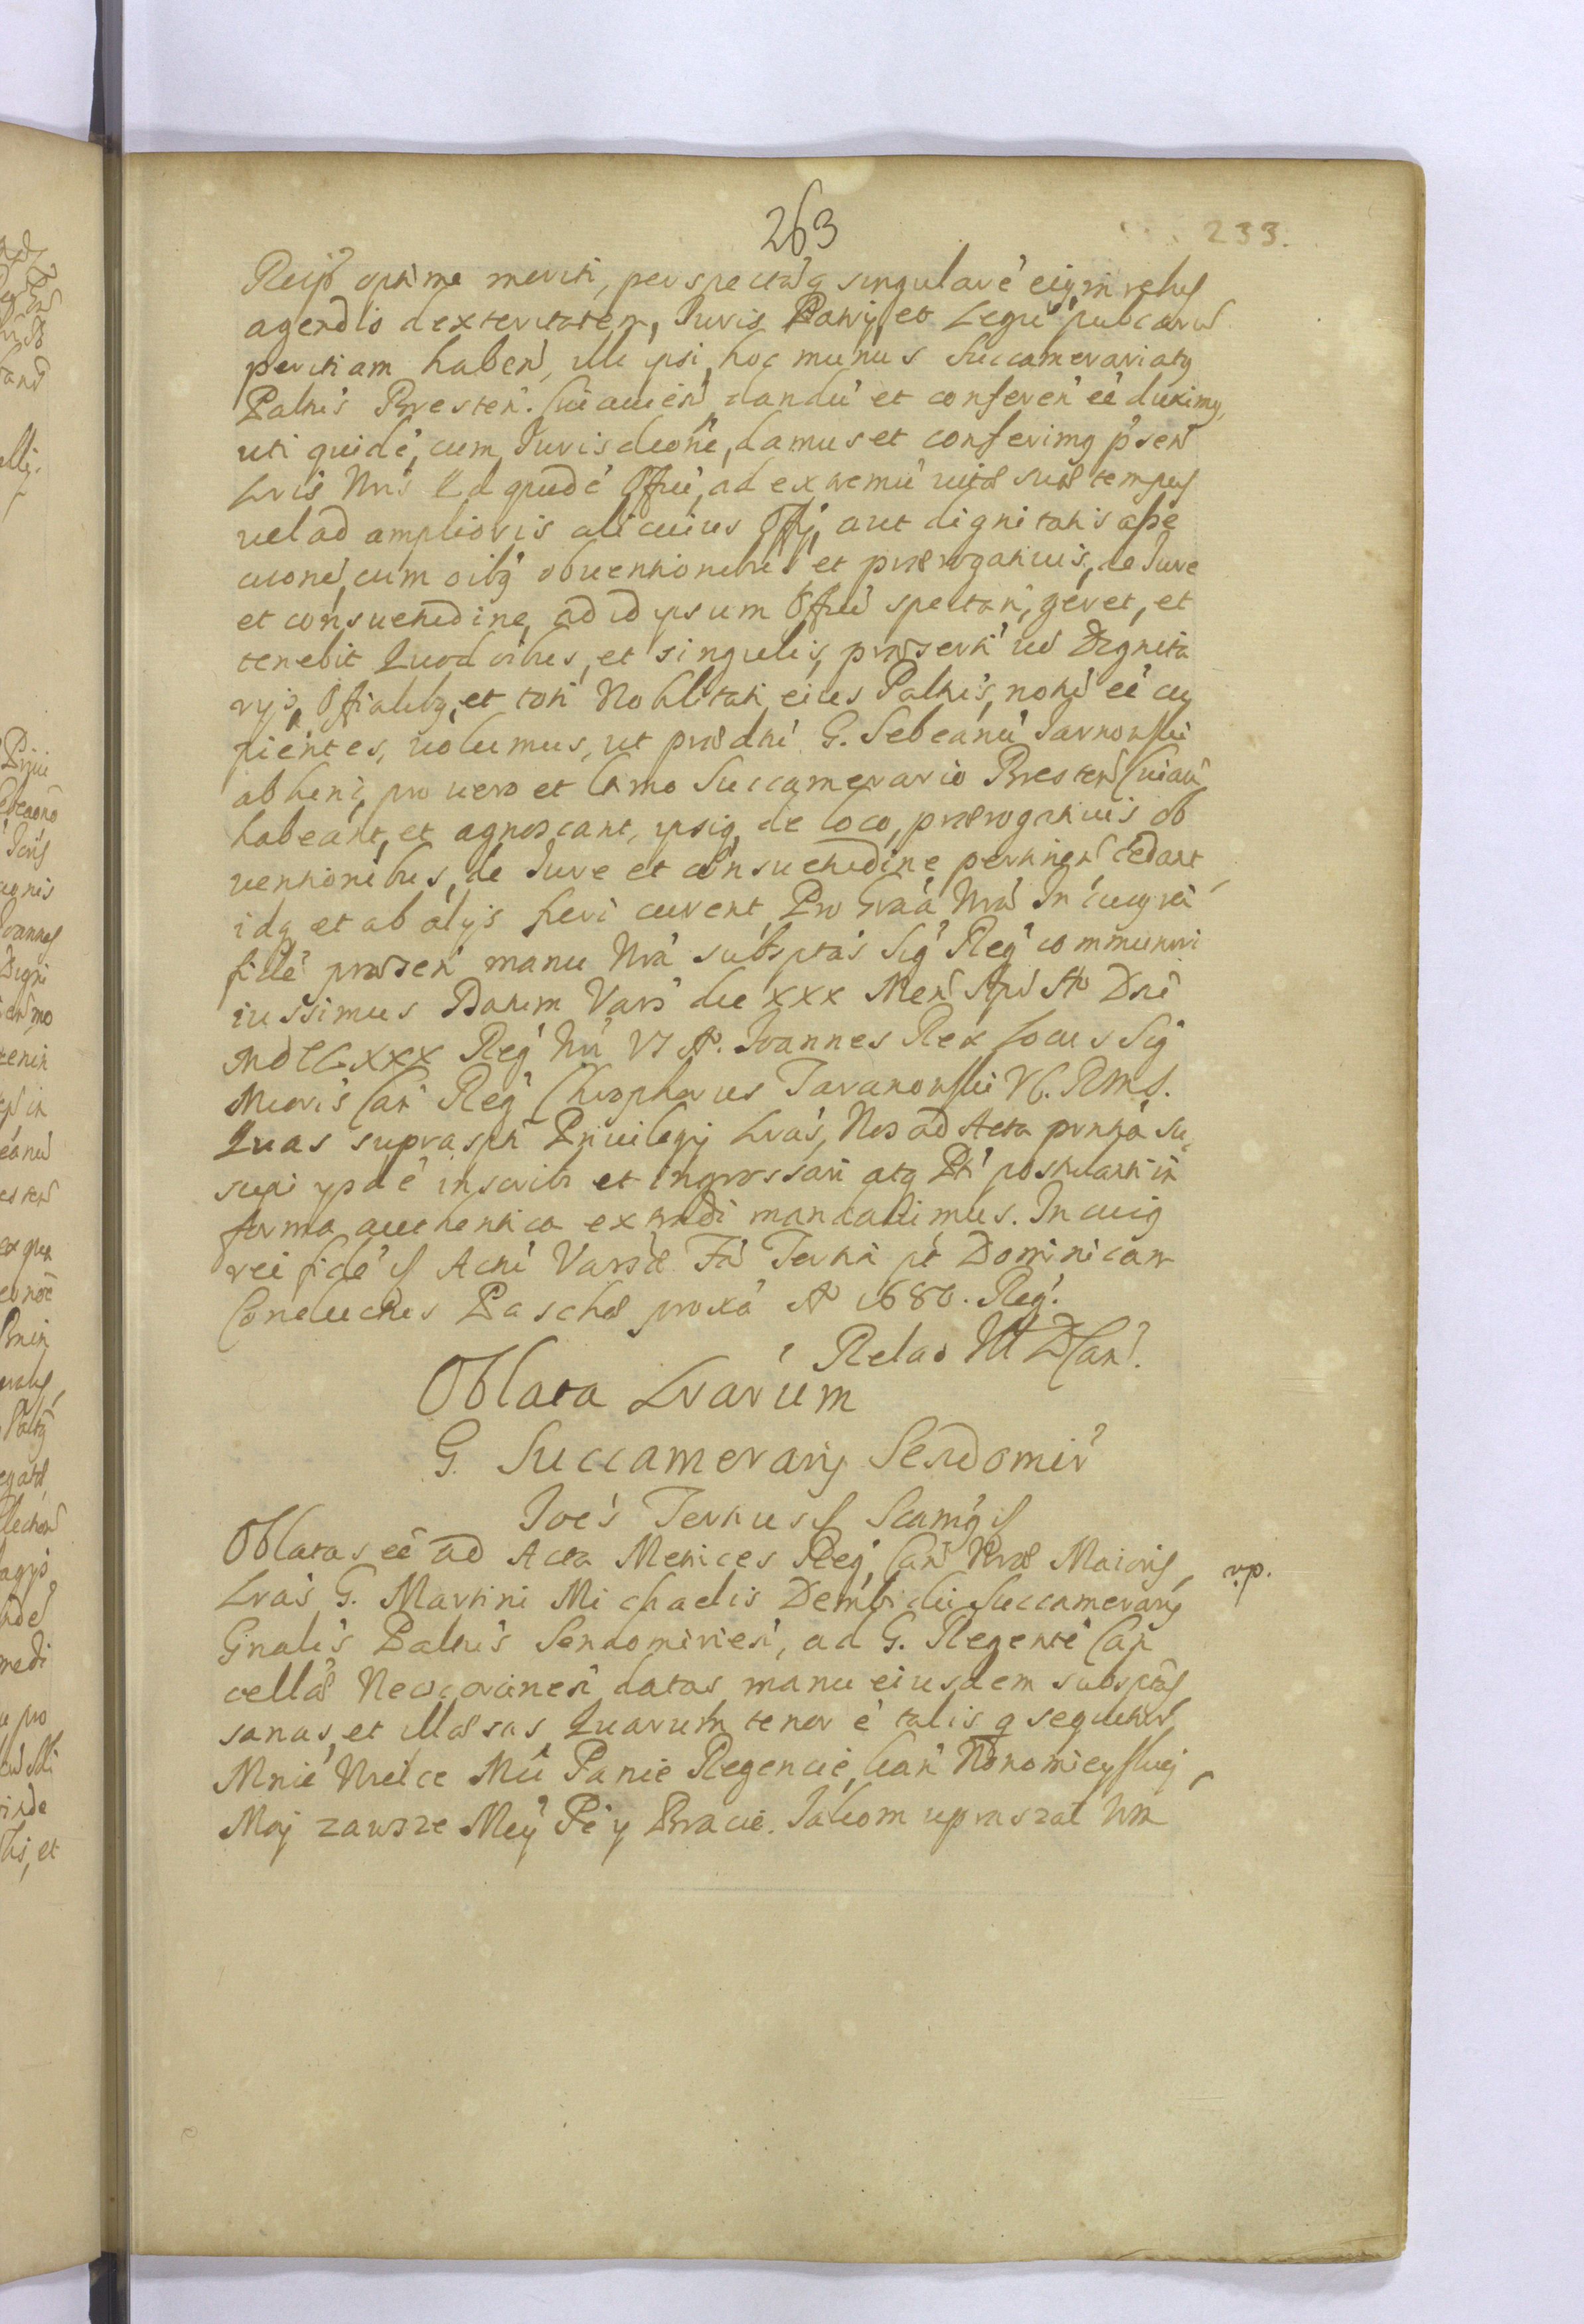 263
233.
Reip optime meriti, perspectaq singularé eiq in rebus
agendis dexteritatem, Iuris Patrij et Legū publicarū
peritiam haben, illi ipsi hoc munus Succamerariatq
Paltñs Bresteñ. Cuiauien dandū et conferen ēe duximq,
uti quidē, cum Iurisdcione, damus et conferimq p̃sen
Lris Nris Id quidē Offiū, ad extremū uitæ suæ tempus
uel ad amplioris alicuius Offij, aut dignitatis asse
cuonē, cum oibq obuentionibus et prærogatiuis, de Iure
et consuetudine, ad id ipsum Offiū spectan, geret, et
tenebit Quod oibus, et singulis, præserti uō Dignita
rijs, Offialibq, et toti Nobilitati eius Paltñs, notū ēe cu
pientes, uolumus, ut prædnī G. Sebeanū Tarnowski
ab heni, pro uero et ltmo Succamerario Bresten Cuiau
habeant, et agnoscant, ipsiq, de loco, prærogatiuis ob
uentionibus, de Iure et consuetudine pertinen cedant
idq et ab alijs fieri curent Pro Graa Nra In cuiq rei
fidē præsen manu Nra subsptas Sig Reg communiri
iussimus Datum Vars die XXX Men Apr Aº Dnī
MDCLXXX Reg Nri VI Aº. Ioannes Rex Locus Sig
Mioris Can Reg Chrophorus Taranowski VC. RMS.
Quas suprasptī Priuilegij Lras, Nos ad Acta pnntia su
scipi ipdē inscribi et ingrossari atq Pti postulanti in
forma authentica extrdi mandauimus. In cuiq
rei fidē & Actū Varsæ Fa Tertia pt Dominicam
Conductus Paschæ proxa Aº 1680. Reg.
Relao Ill D Can.
Oblata Lrarum
G. Succamerarij Sendomir
Ioēs Tertius & Scimq &
Oblatas ēe ad Acta Metrices Reg, Can Rræ Maioris
v.p.
Lras G. Martini Michaelis Dembicki Succamerarij
Gnalis Paltñs Sendomirien, ad G. Regentē Can
cellæ Neocorcinen datas, manu eiusdem subsptas,
sanas, et illæsas, Quarum tenor ē talis q sequitur
Mnie Wielce Mū Panie Regencie, kan Nowomieyskiej,
Moj zawsze Mcy Pe y Bracie. Iakom upraszał Wm